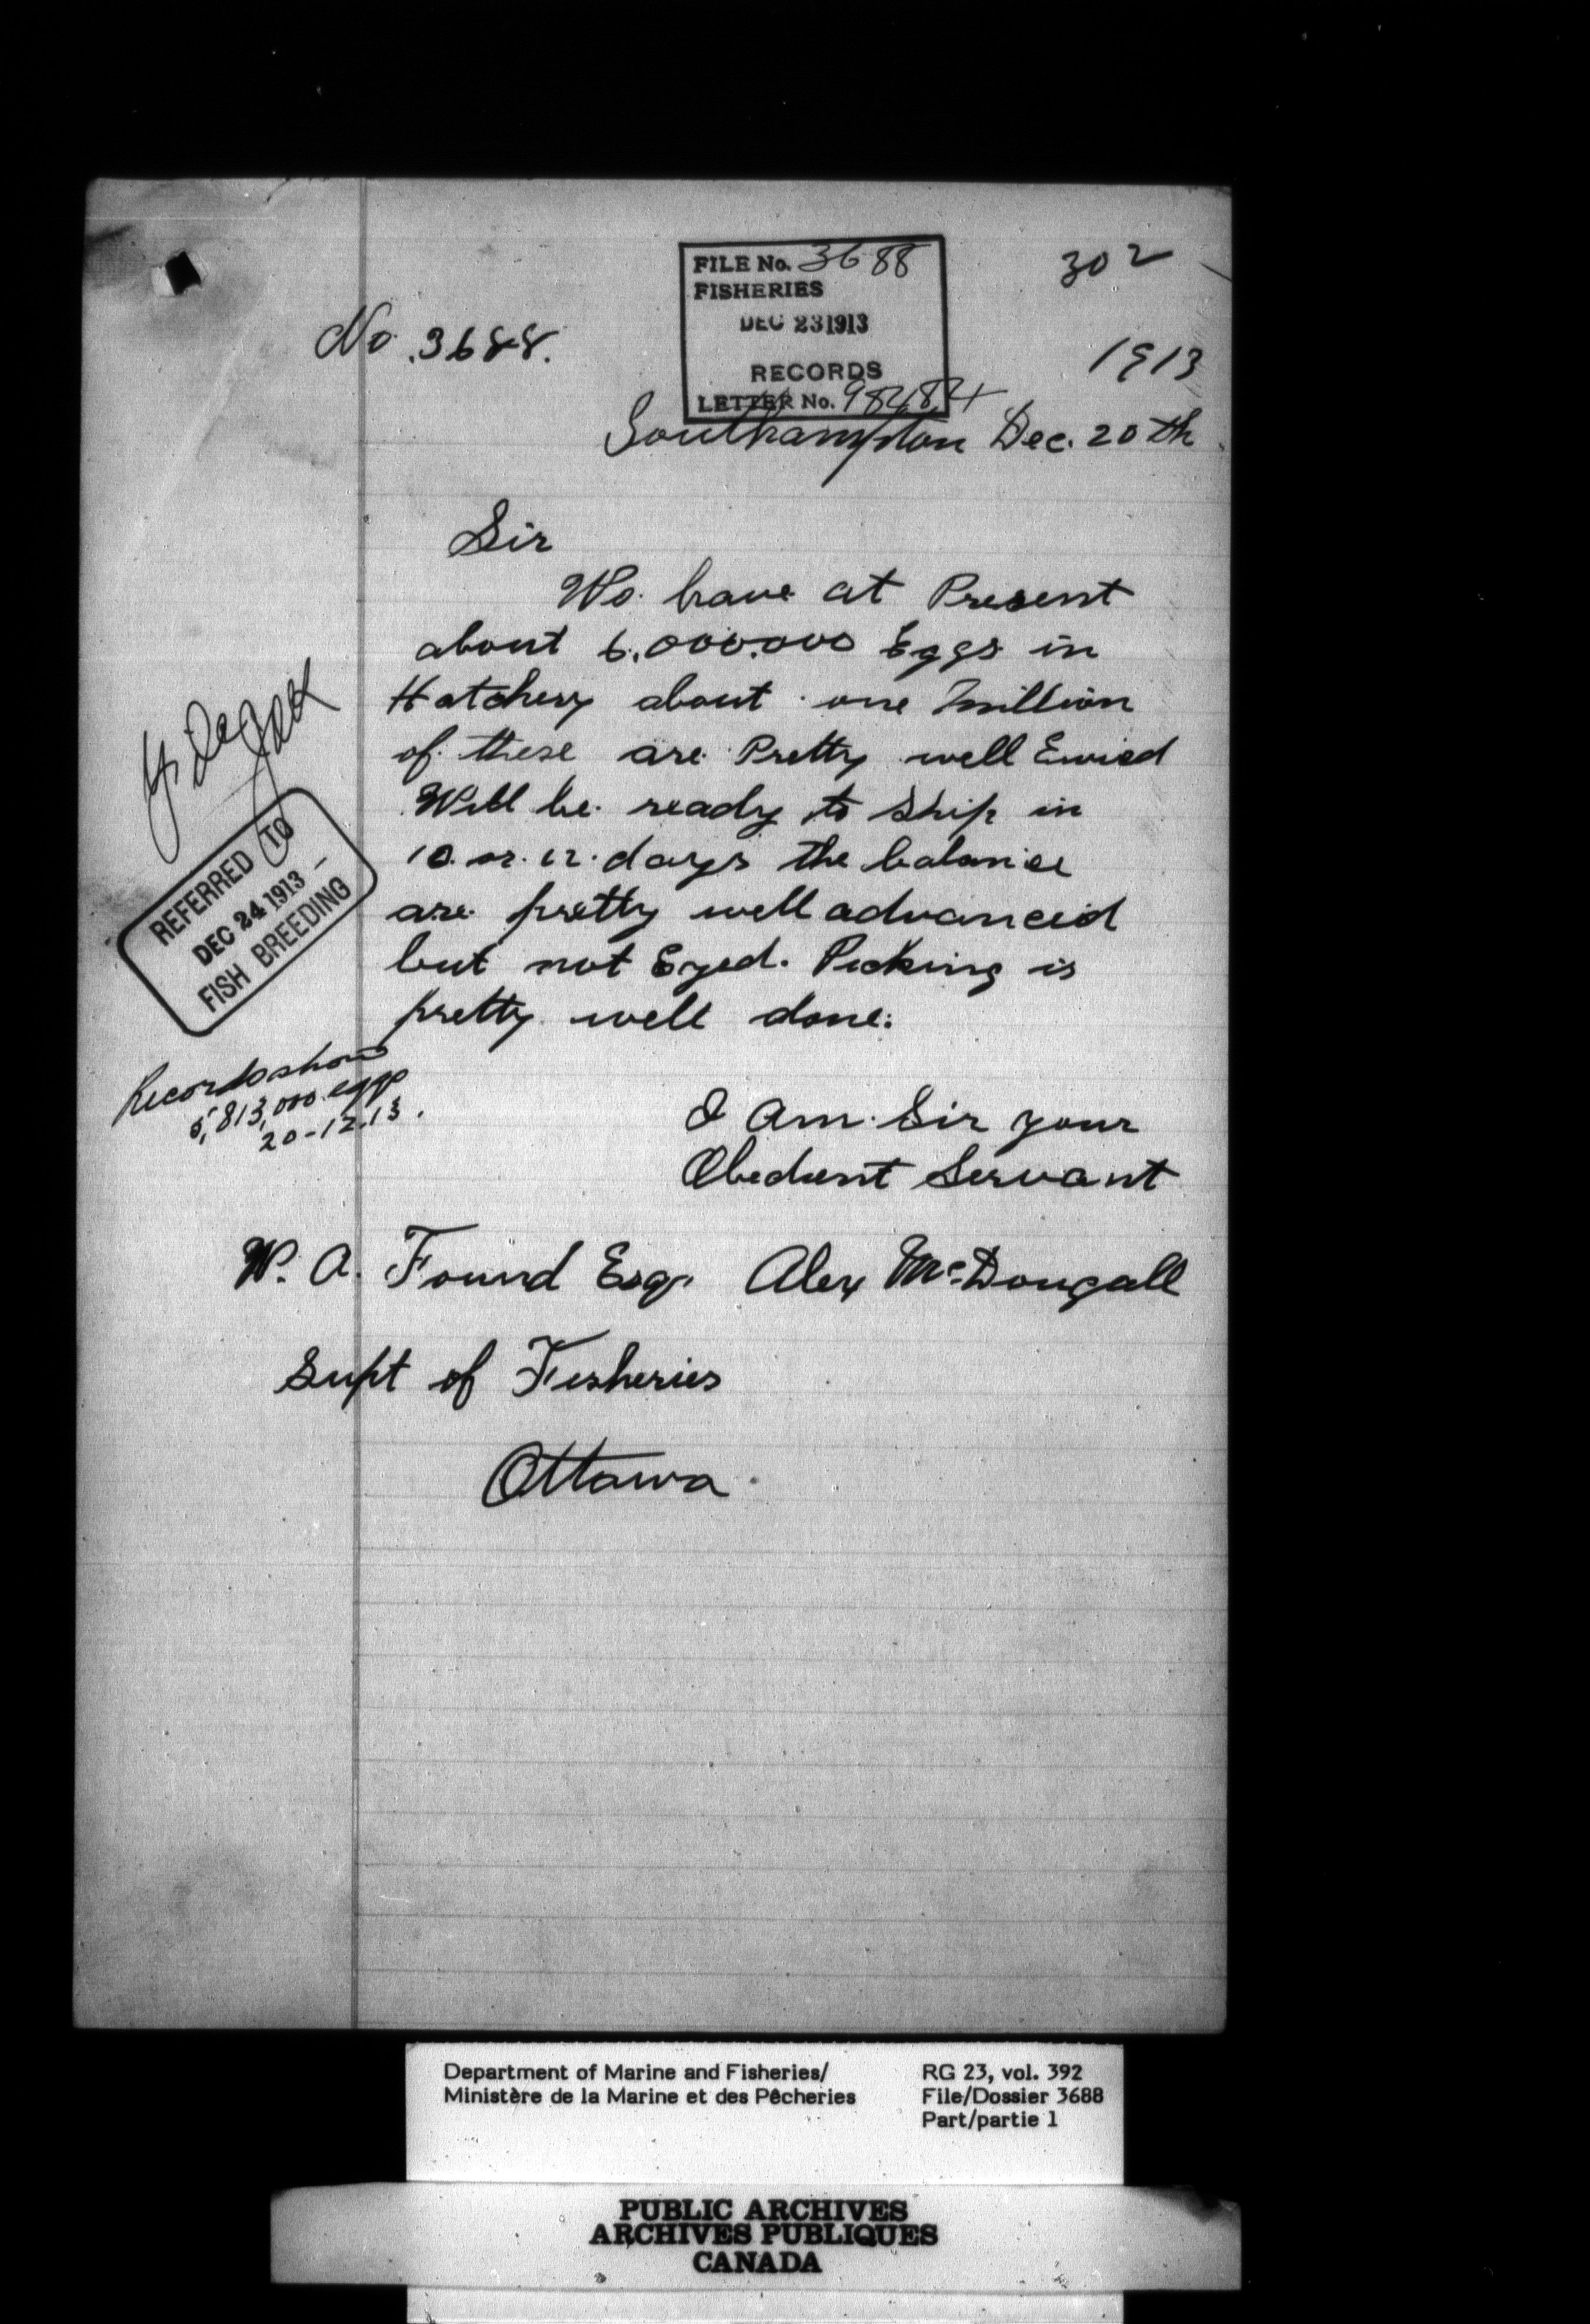 302
FILE No. 3688
FISHERIES
DEC 23 1913
RECORDS
LETTER No. 98484
No. 3688.
1913
Southampton Dec. 20th
Sir
We have at Present
about 6.000.000 Eggs in
Hatchery about one Million
of these are Pretty well
Will be ready to Ship in
10. or. 12. days the balance
are pretty well advanced
but not Eyed. Picking is
pretty well done.
REFERRED TO
DEC 24 1913
FISH BREEDING
Records show
5,813,000 eggs
20-12.13.
I Am Sir your
Obedient Servant
W. A. Found Esq. Alex McDougall
Supt of Fisheries
Ottawa.
Department of Marine and Fisheries/
Ministère de la Marine et des Pêcheries
RG 23, vol. 392
File/Dossier 3688
Part/partie 1
PUBLIC ARCHIVES
ARCHIVES PUBLIQUES
CANADA